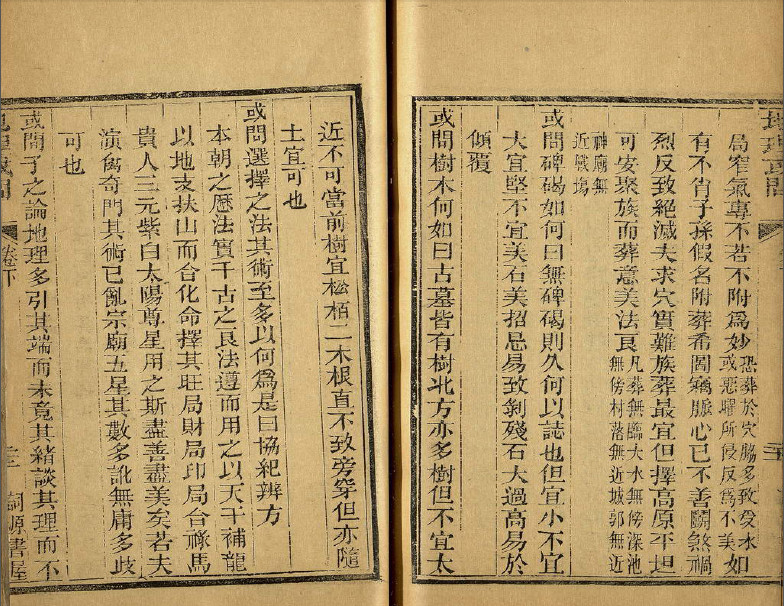 局窄氣專不若不附為妙恐葬於穴脇多致受水或惡曜所侵反為不美如
有不肖子孫假名附葬希圖竊脈心已不善鬭煞禍
烈反致絕滅夫求穴實難族葬最宜但擇高原平坦
可安聚族而葬意美法良凡葬無臨大水無傍深池無傍村落無近城郭無近
神廟無近戰場
或問碑碣如何曰無碑碣則久何以誌也但宜小不宜
大宜堅不宜美石美招忌易致剝殘石大過高易於
傾覆
或問樹木何如曰古墓皆有樹北方亦多樹但不宜太
近不可當前樹宜松栢二木根直不致旁穿但亦隨
土宜可也
或問選擇之法其術至多以何為是曰協紀辨方
本朝之厯法實千古之良法遵而用之以天干補龍
以地支扶山而合化命擇其旺局財局印局合祿馬
貴人三元紫白太陽尊星用之斯盡善盡美矣若夫
演禽奇門其術已亂宗廟五星其數多訛無庸多歧
可也
或問子之論地理多引其端而未竟其緒談其理而不
卷下
源書屋